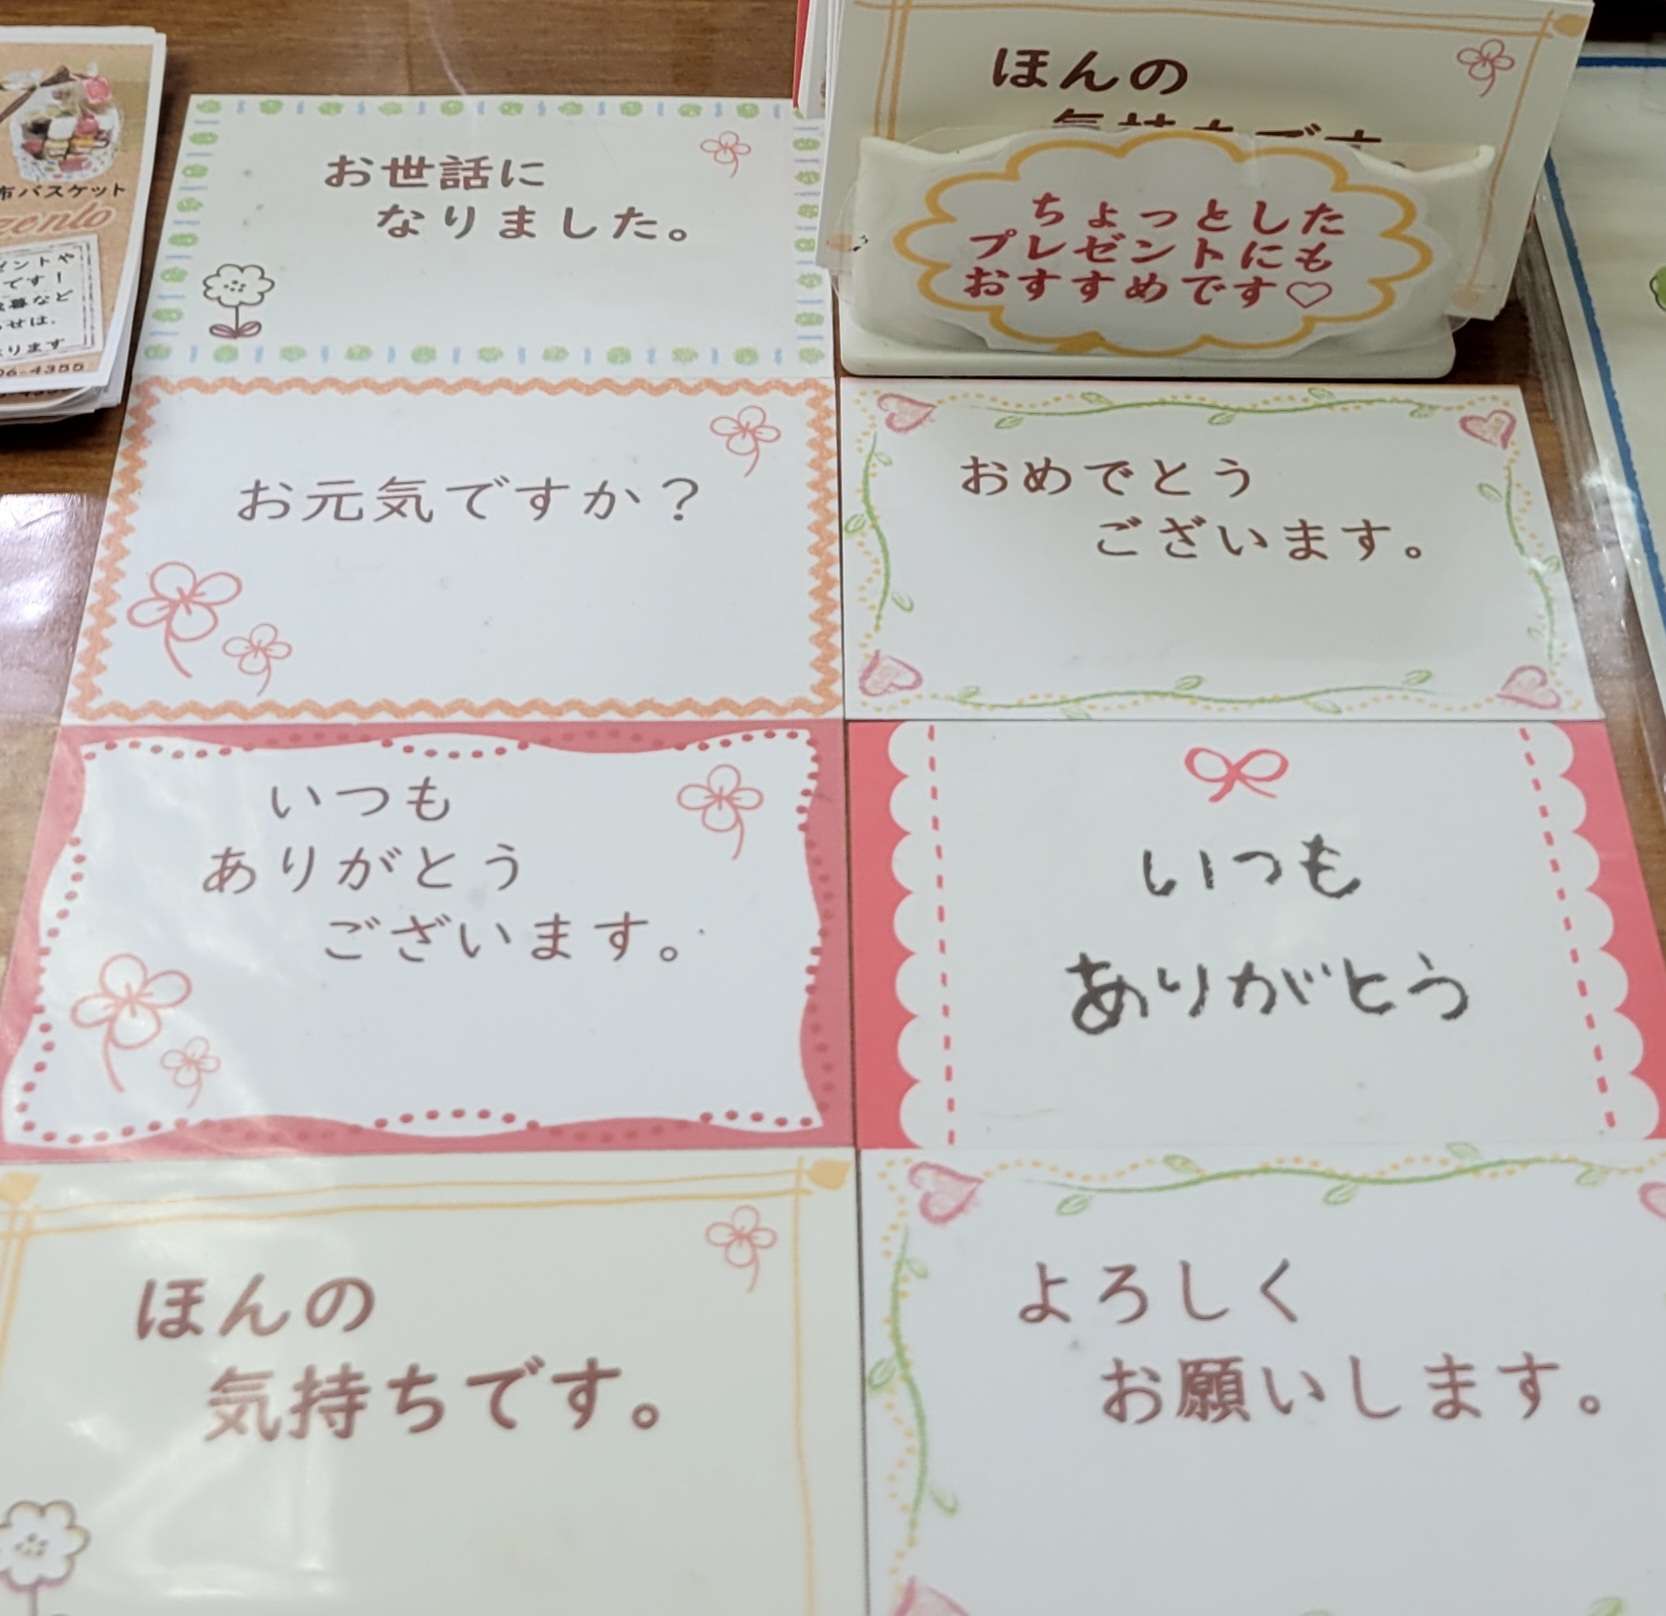 布バスケット
ゼントや
です！
など
せは、
ります
06-4355
お世話に
なりました。
ほんの
ちょっとした
プレゼントにも
おすすめです♡
お元気ですか？
おめでとう
ございます。
いつも
ありがとう
ございます。
いつも
ありがとう
ほんの
気持ちです。
よろしく
お願いします。